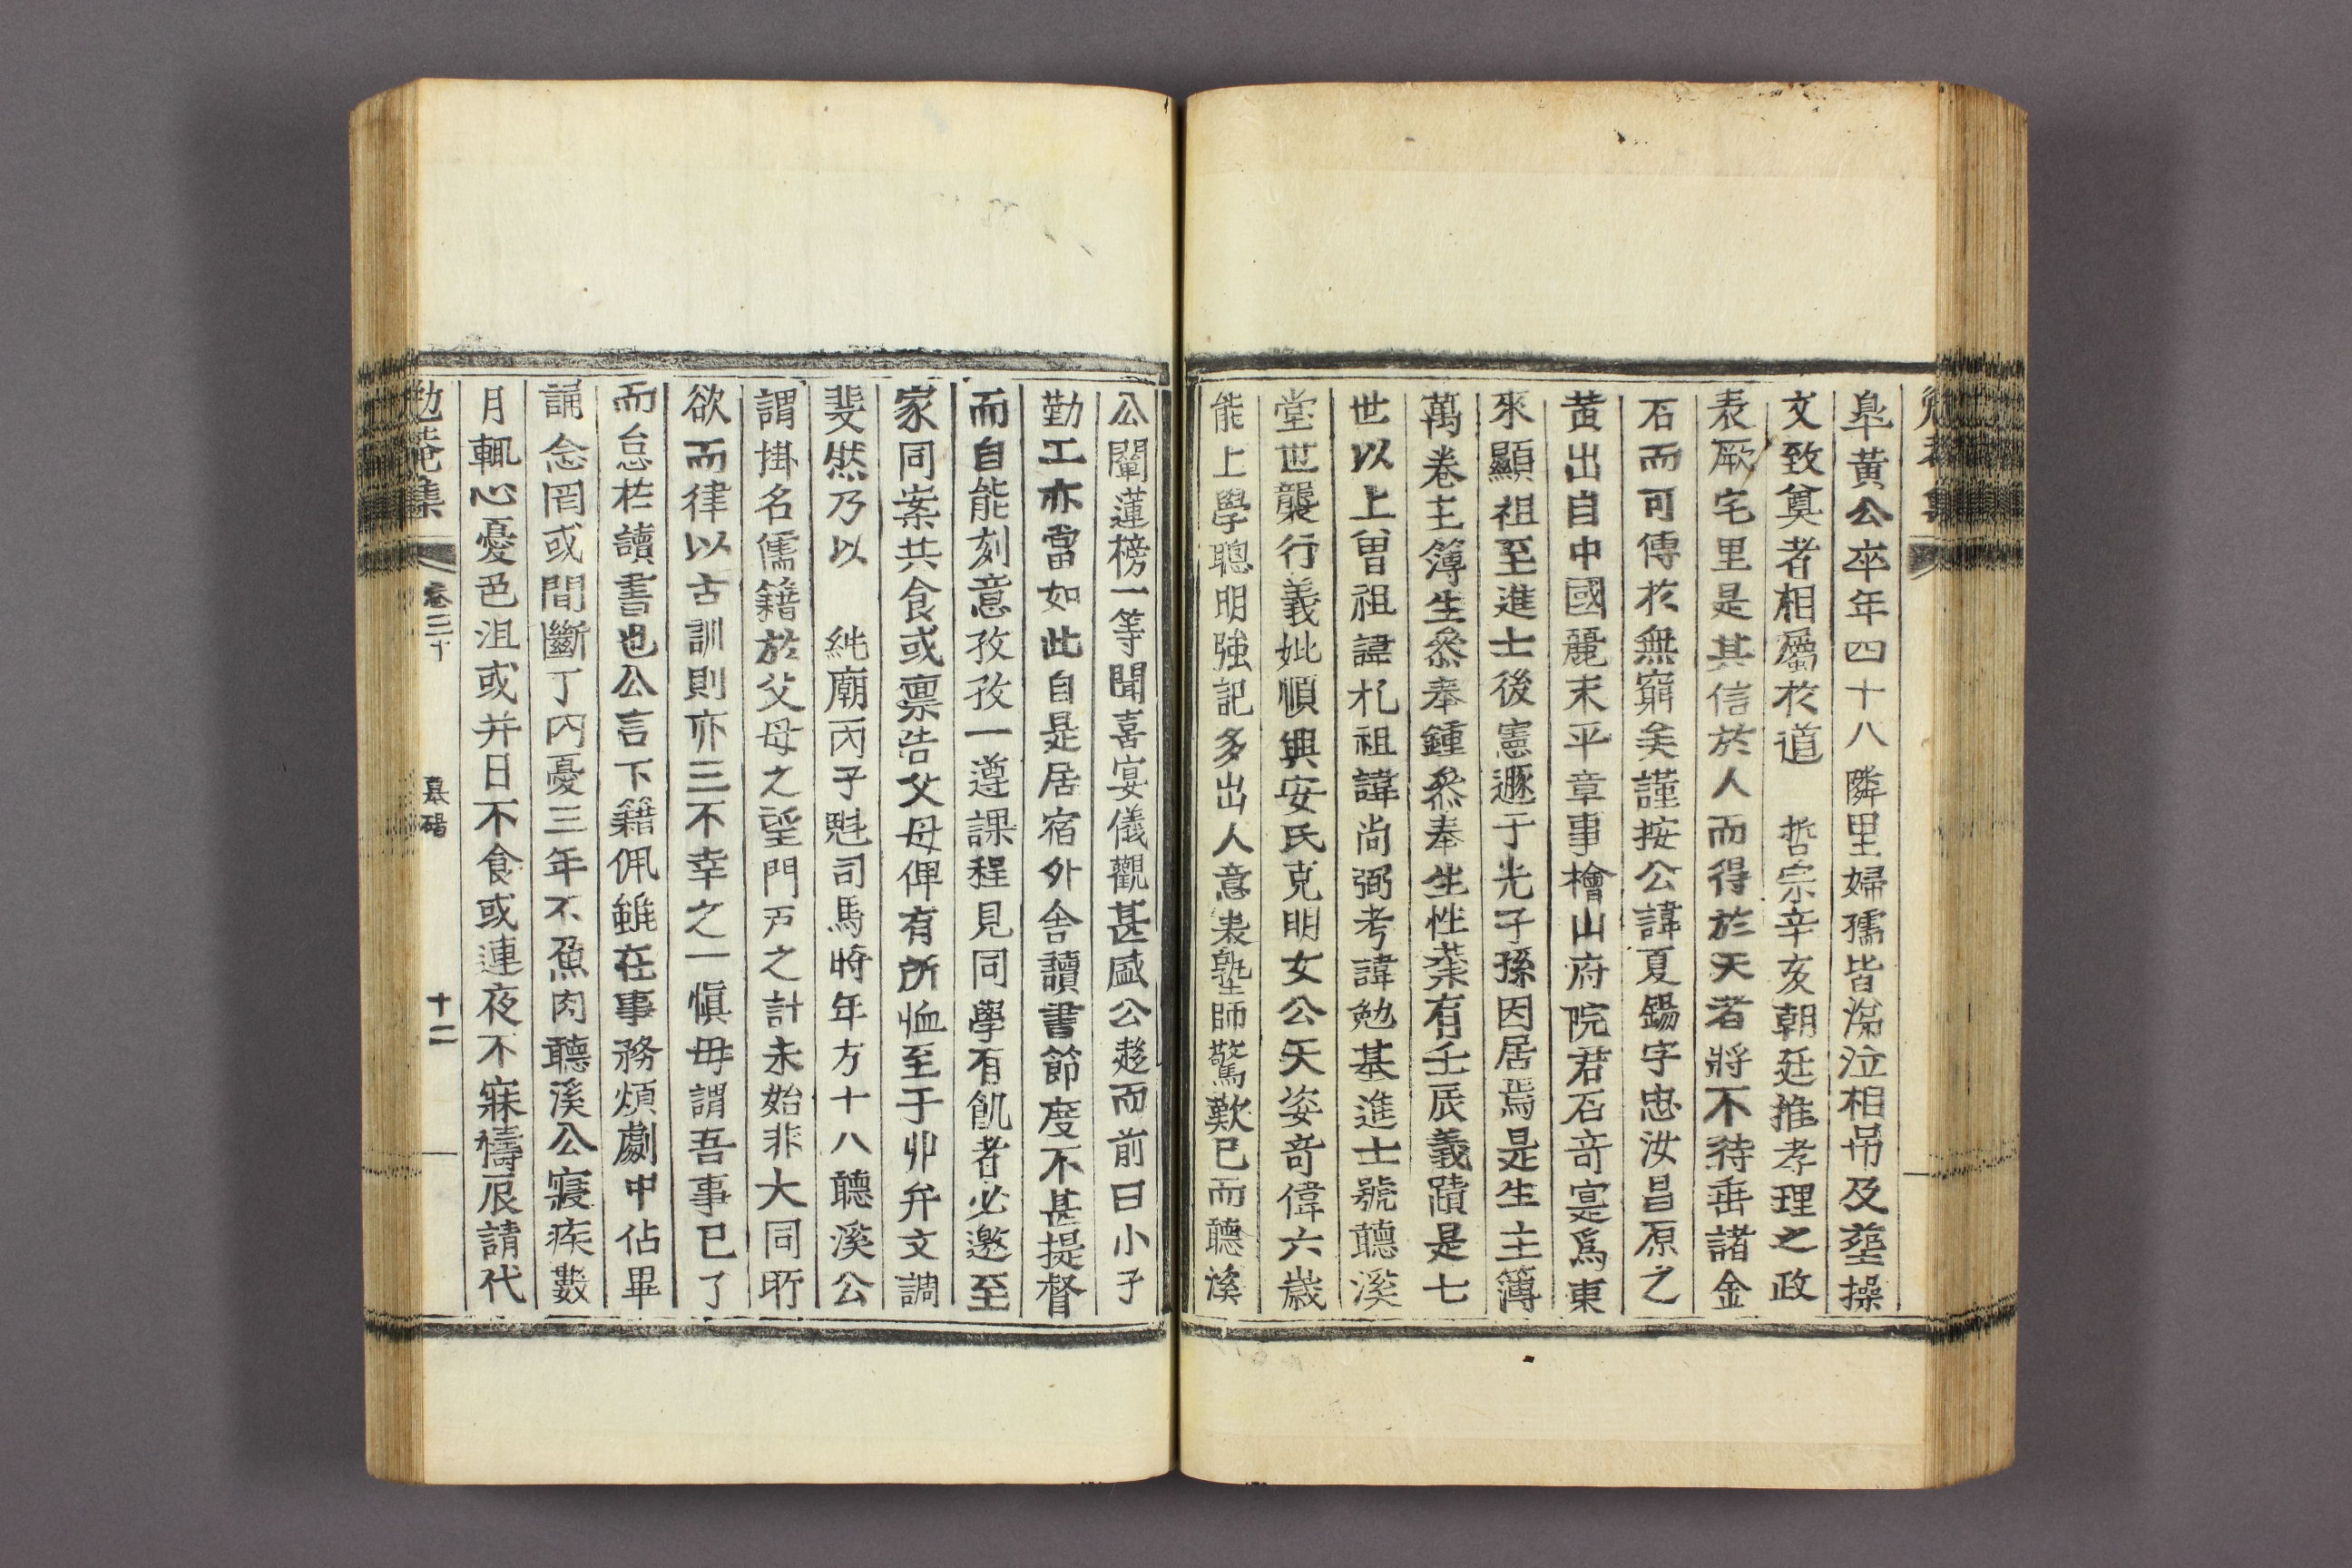 勉菴集
皐黃公卒年四十八隣里婦孺皆涕泣相吊及葬操
文致奠者相屬於道　哲宗辛亥朝廷推孝理之政
表厥宅里是其信於人而得於天者將不待乖諸金
石而可傳於無窮矣謹按公諱夏錫字忠汝昌原之
黃出自中國麗末平章事檜山府院君石奇寔爲東
來顯祖至進士後憲遯于光子孫因居焉是生主簿
萬卷主簿生叅奉鍾叅奉生性菜有壬辰義蹟是七
世以上曾祖諱札祖諱尙弼考諱勉基進士號聽溪
堂世襲行義妣順興安氏克明女公天姿奇偉六歲
能上學聰明強記多出人意表塾師驚歎已而聽溪
公闡蓮榜一等聞喜宴儀觀甚盛公趍而前曰小子
勤工亦當如此自是居宿外舍讀書節度不甚提督
而自能刻意孜孜一遵課程見同學有飢者必邀至
家同案共食或禀告父母俾有所恤至于丱弁文調
斐然乃以　純廟丙子魁司馬時年方十八聽溪公
謂掛名儒籍於父母之望門戶之計未始非大同所
欲而律以古訓則亦三不幸之一愼毋謂吾事已了
而怠於讀書也公言下籍佩雖在事務煩劇中佔畢
誦念罔或間斷丁內憂三年不魚肉聽溪公寢疾數
月輒心憂色沮或幷日不食或連夜不寐禱辰請代
勉菴集　卷三十　墓碣　十二